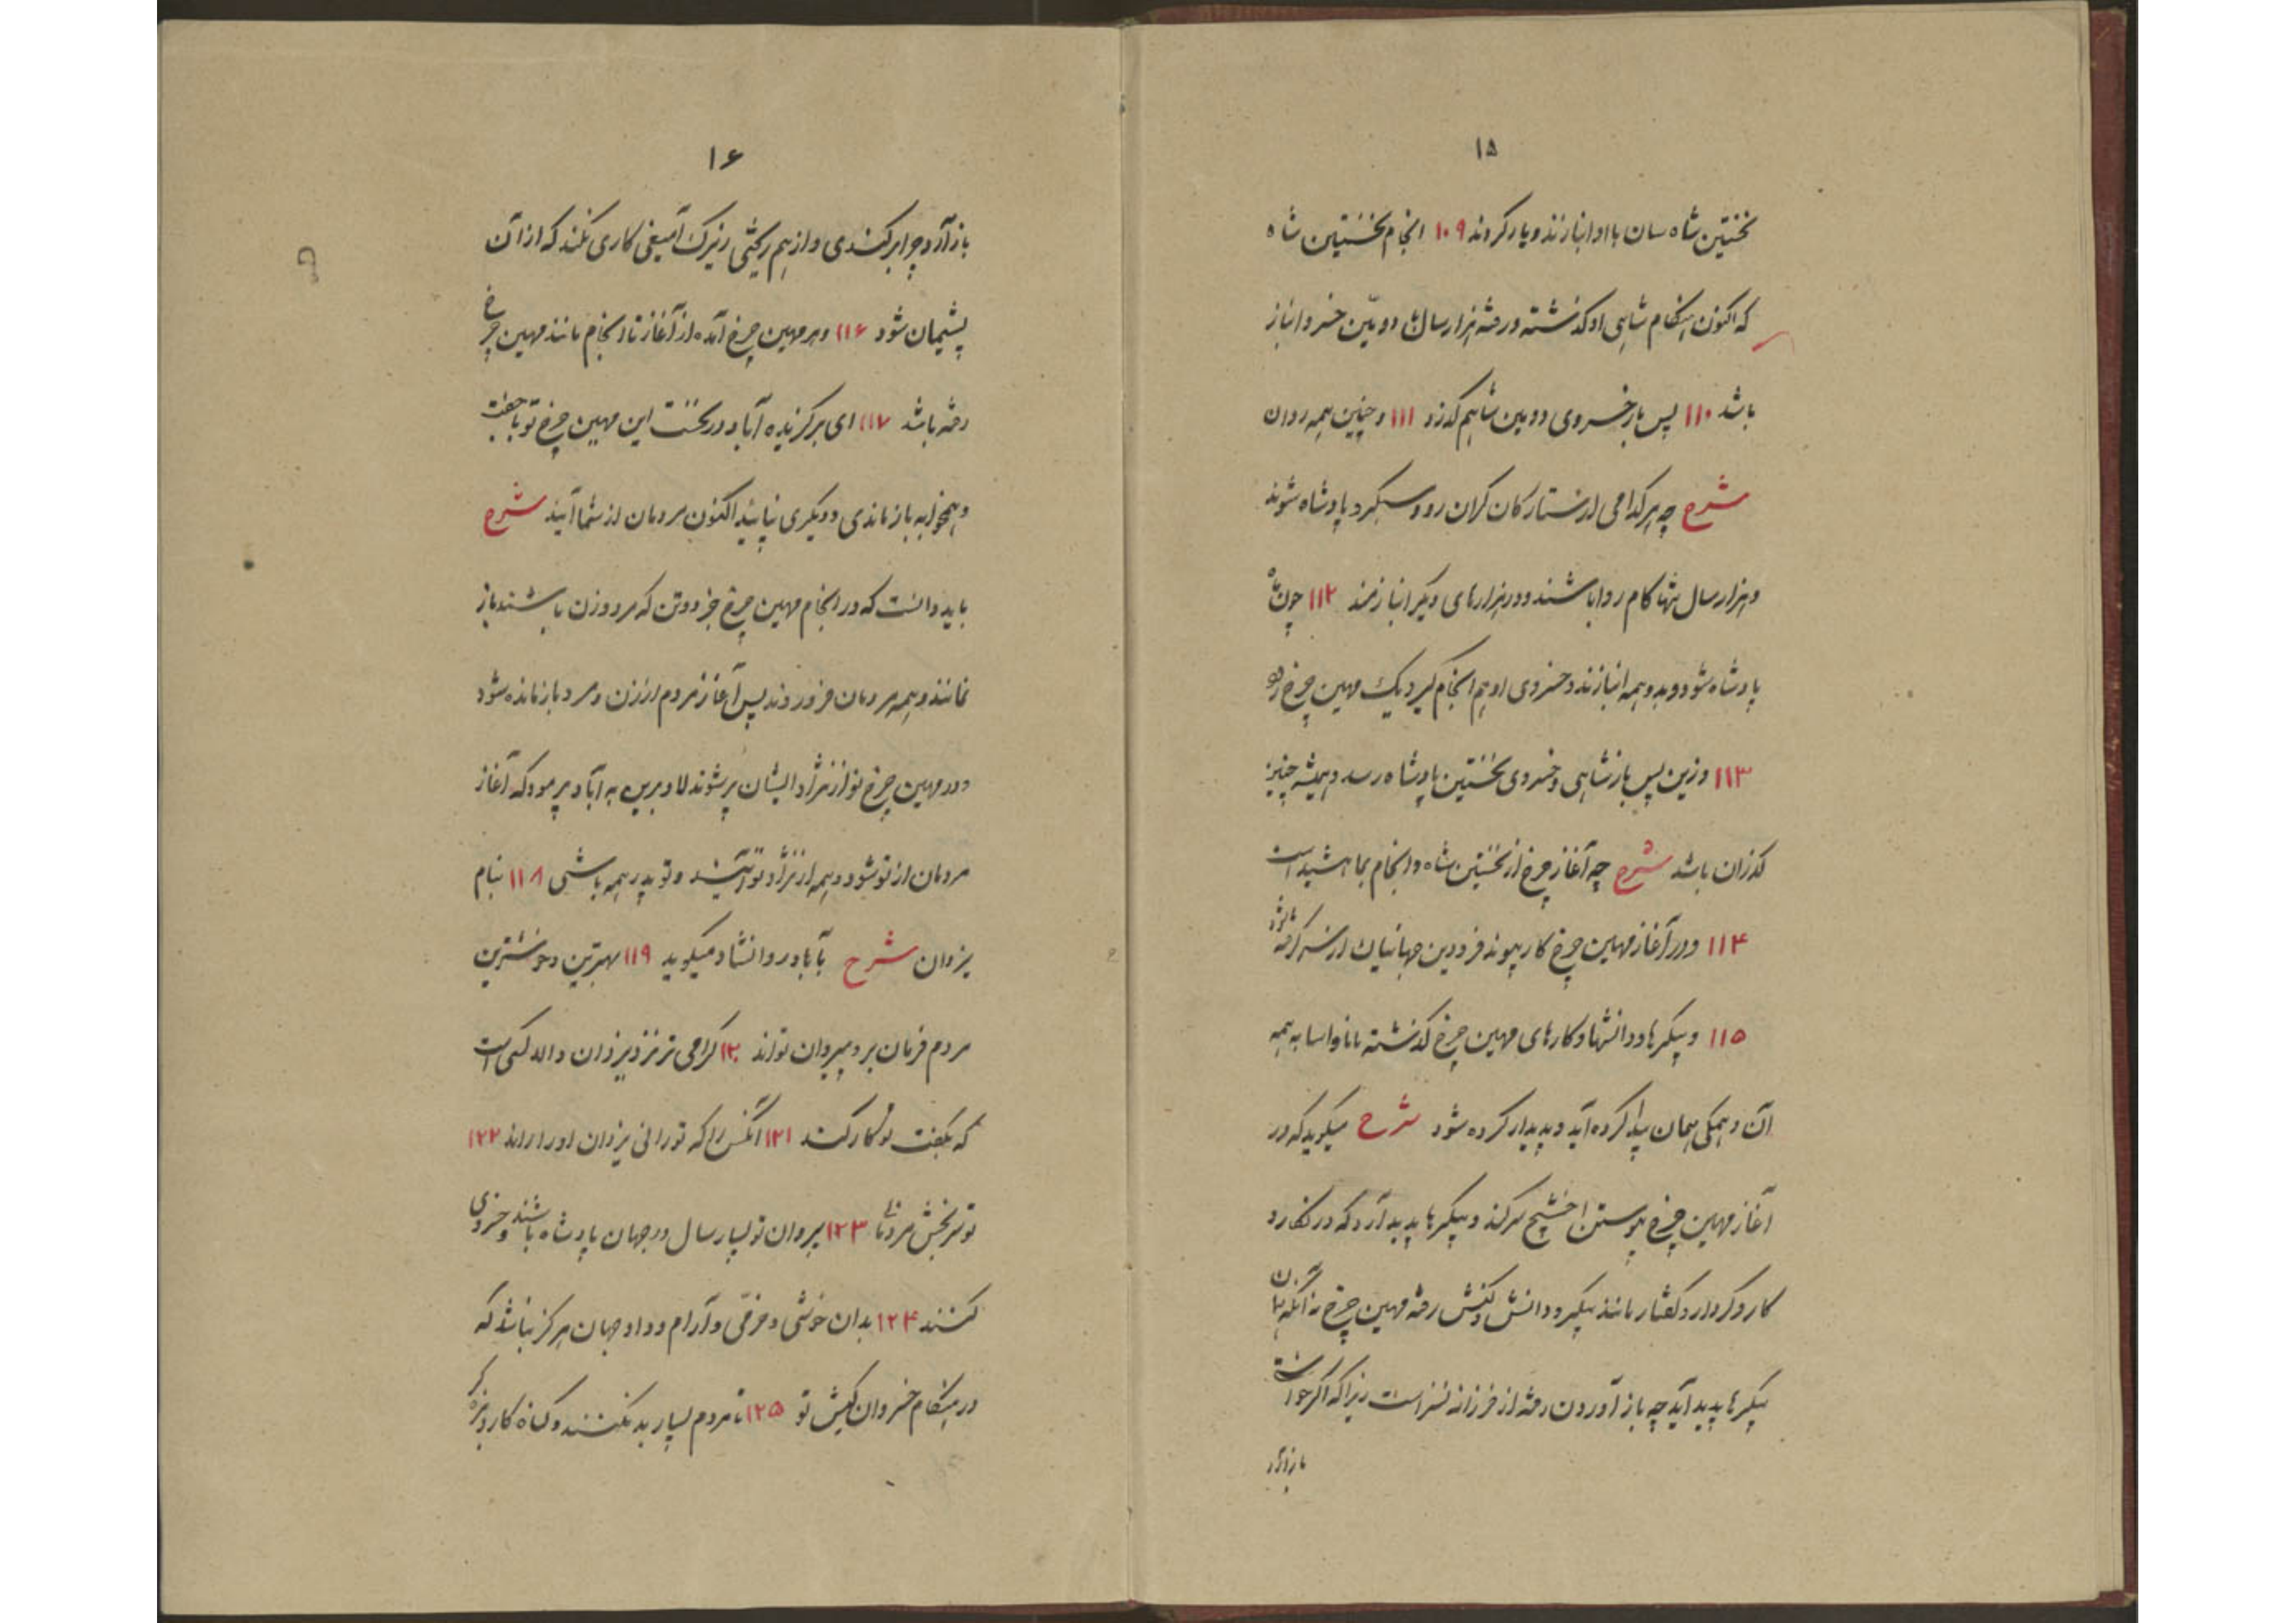 ۱۵
نخستین شاه سان با او انبازند و یار کردند ۱۰۹ انجام نخستین شاه
که اکنون هنگام شاهی او گذشته و رفته هزار سال ها دومین خسرو انباز
باشد ۱۱۰ پس باز خسروی دومین شاه هم گذرد ۱۱۱ و چنین همه را دان
شرح چه هر کدامی از ستارگان گران رو و سبکرد پادشاه شوند
و هزار سال تنها کام روا باشند و در هزارهای دیگر انبازمند ۱۱۲ چون ماه
پادشاه شود و بدو همه انبازند و خسروی او هم انجام گیرد یک مهین چرخ رود
۱۱۳ وزین پس باز شاهی و خسروی نخستین پادشاه رسد و همیشه چنین
گذران باشد شرح چه آغاز چرخ از نخستین شاه و انجام بماه شید است
۱۱۴ و در آغاز مهین چرخ کار پیوند فرودین جهانیان از سر گرفته شود
۱۱۵ و پیکرها و دانشها و کارهای مهین چرخ گذشته مانا و اسا به همه
آن و همگی همان پیدا کرده آید و پدیدار کرده شود شرح میگوید که در
آغاز مهین چرخ پیوستن اخشیج سر کند و پیکرها پدید آرد که در نگار و
کار و کردار و گفتار مانند پیکر و دانش و کنش رفته مهین چرخ نه آنکه همان
پیکرها پدید آید چه باز آوردن رفته از فرزانه نسزاست زیرا که اگر خواستی
باز آرد
۱۶
باز آرد چرا بر کندی و از هم ریختی زیرک آمیغی کاری نکند که از آن
پشیمان شود ۱۱۶ و هر مهین چرخ آمده از آغاز تا انجام مانند مهین چرخ
رفته باشد ۱۱۷ ای برگزیده آباد در نخست این مهین چرخ تو با جفت
و همخوابه باز ماندی و دیگری نپایید اکنون مردمان از شما آیند شرح
باید دانست که در انجام مهین چرخ جز دو تن که مرد و زن باشند باز
نمانند و همه مردمان فرو روند پس آغاز مردم از زن و مرد باز مانده شود
و در مهین چرخ نو از نژاد ایشان پر شوند لا و برین به آباد پرمود که آغاز
مردمان از تو شود و همه از نژاد تو آیند و تو پدر همه باشی ۱۱۸ بنام
یزدان شرح بآباد روانشاد میگوید ۱۱۹ بهترین و خوشترین
مردم فرمان بر و پیروان تواند ۱۲۰ گرامی تر نزد یزدان دالد کسی است
که بگفت تو کار کند ۱۲۱ آنکس را که تو رانی یزدان او را راند ۱۲۲
۱۲۳ پیروان تو بسیار سال در جهان پادشاه باشند و خسروی
کنند ۱۲۴ بدان خوشی و خرمی و آرام و داد جهان هرگز نباشد که
در هنگام خسروان کیش تو ۱۲۵ تا مردم بسیار بد نکنند و گناه کار و بزه گر